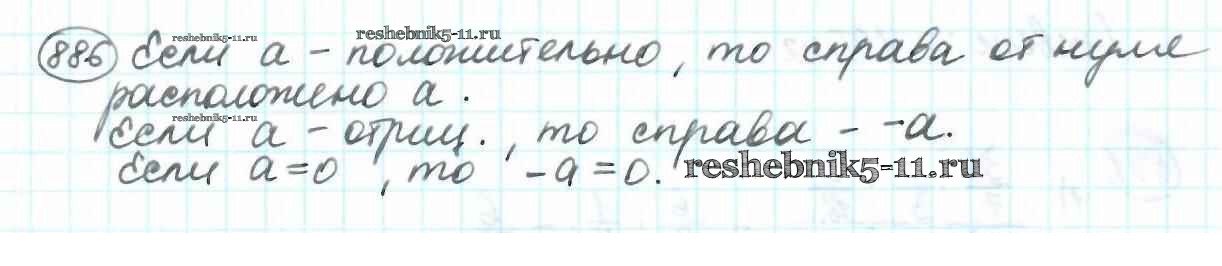 reshebnik5-11.ru reshebnik5-11.ru
886 Если а - положительно, то справа от нуля
расположено а.
reshebnik5-11.ru
Если а - отриц., то справа - -а.
Если а=0, то -а=0. reshebnik5-11.ru